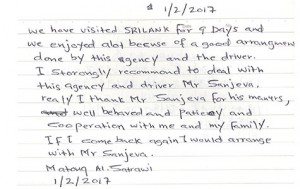 1/2/2017
we have visited SRILANK For 9 Days and
we enjoyed alot becuse of a good arrangment
done by this agency and the driver.
I Storongly recommond to deal with
this agency and driver Mr Sanjeva.
really I thank Mr Sanjeva for his maners,
well behaved and patiency and
cooperation with me and my family.
IF I come back again I would arrange
with Mr Sanjeva.
1/2/2017